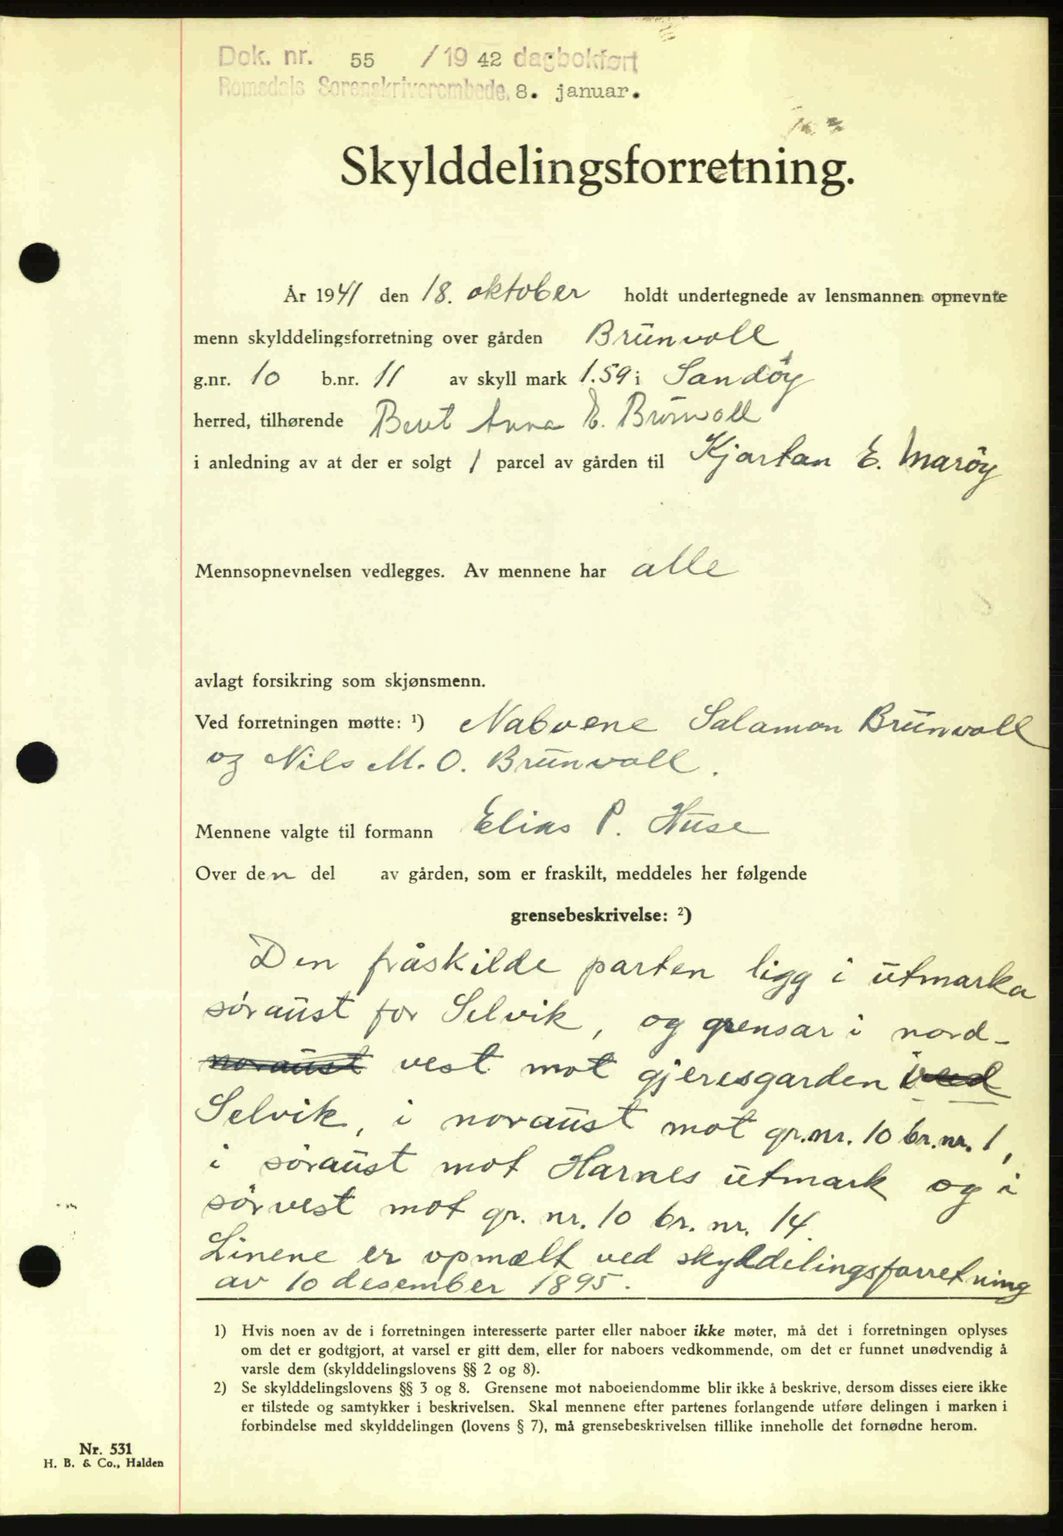 Dok. nr. 55 / 1942 dagbokført
Romsdals Sorenskriverembede, 8. januar.
Skylddelingsforretning.
År 1941 den 18. oktober holdt undertegnede av lensmannen opnevnte
menn skylddelingsforretning over gården Brünvoll
g.nr. 10 b.nr. 11 av skyll mark 1.59 i Sandöy
herred, tilhørende Beret Anna E. Brünvoll
i anledning av at der er solgt 1 parcel av gården til Kjartan E. Maröy
Mennsopnevnelsen vedlegges. Av mennene har alle
avlagt forsikring som skjønsmenn.
Ved forretningen møtte: ¹) Naboene Salamon Brünvoll
og Nils M. O. Brünvoll.
Mennene valgte til formann Elias P. Huse
Over den del av gården, som er fraskilt, meddeles her følgende
grensebeskrivelse: ²)
Den fråskilde parten ligg i utmarka
søraust for Selvik, og grensar i nord-
noraust vest mot gjeresgarden i ved
Selvik, i noraust mot gr.nr. 10 br.nr. 1,
i søraust mot Harnes utmark og i
sørvest mot gr. nr. 10 br. nr. 14.
Linene er opmælt ved skylddelingsforretning
av 10 desember 1895.
1) Hvis noen av de i forretningen interesserte parter eller naboer ikke møter, må det i forretningen oplyses
om det er godtgjort, at varsel er gitt dem, eller for naboers vedkommende, om det er funnet unødvendig å
varsle dem (skylddelingslovens §§ 2 og 8).
2) Se skylddelingslovens §§ 3 og 8. Grensene mot naboeiendomme blir ikke å beskrive, dersom disses eiere ikke
er tilstede og samtykker i beskrivelsen. Skal mennene efter partenes forlangende utføre delingen i marken i
forbindelse med skylddelingen (lovens § 7), må grensebeskrivelsen tillike inneholle det fornødne herom.
Nr. 531
H. B. & Co., Halden